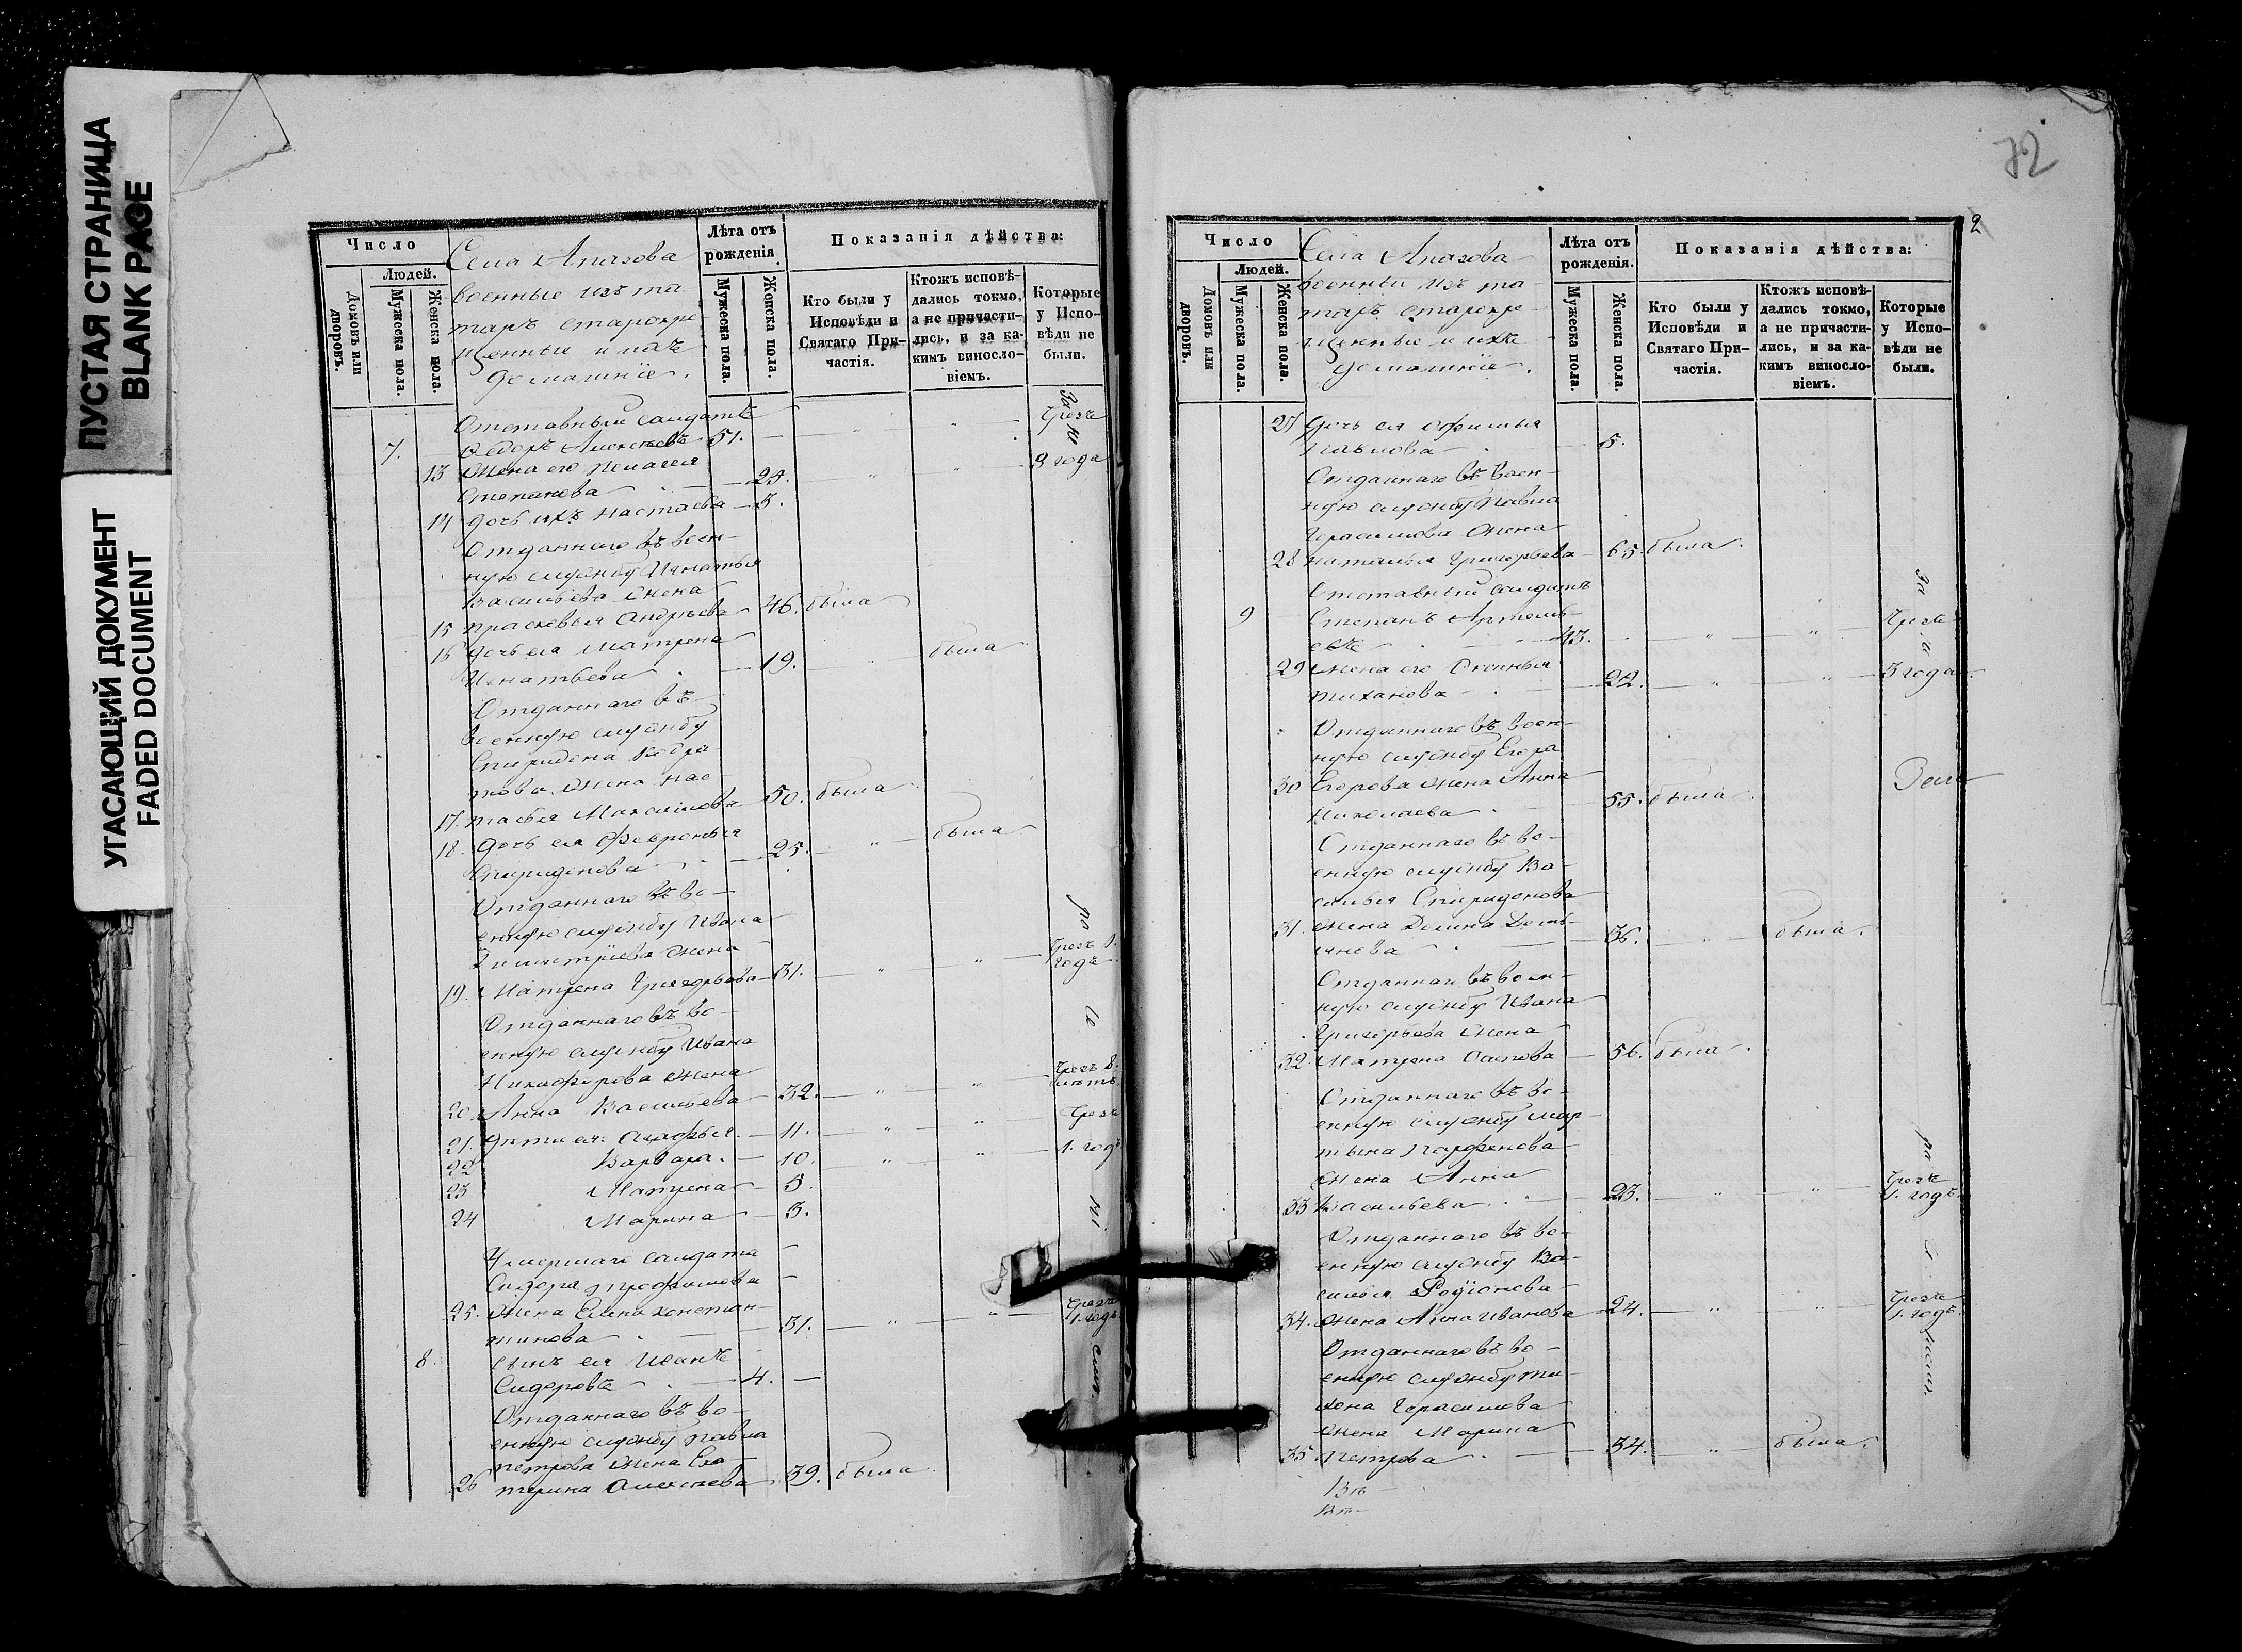 ПУСТАЯ СТРАНИЦА
BLANK PAGE
УГАСАЮЩИЙ ДОКУМЕНТ
FADED DOCUMENT
Число
Людей.
Домовъ или дворовъ.
Мужеска пола.
Женска пола.
Села Апазова
военные изъ та-
таръ старокре-
щенные и ихъ
домашніе.
Лѣта отъ рожденія.
Мужеска пола.
Женска пола.
Показанія дѣйства:
Кто были у Исповѣди и Святаго При-частія.
Ктожъ исповѣ-дались токмо, а не причасти-лись, и за ка-кимъ винослo-віемъ.
Которые у Испо-вѣди не были.
Отставный салдатъ
7. Ѳедоръ Алексѣевъ 51.
13 Жена его Пелагея
Степанова 24.
3 года
14 дочь ихъ Настасья 3.
Отданнаго въ воен-
ную службу Игнатья
Васильева жена
15 Прасковья Андрѣева 46. была
16 Дочь ея Матрена
Игнатьева 19. была
Отданнаго въ
военную службу
Спиридона Кодра-
това жена Нас-
17. тасья Максимова 50. была
18. Дочь ея Февронья
Спиридонова 25. была
Отданнаго въ во-
енную службу Ивана
Димитріева жена
19. Матрена Григорьева 31. Чрезъ 1. годъ
Отданнаго въ во-
енную службу Ивана
Никифорова жена
20 Анна Васильева 32. Чрезъ 8. лѣтъ
21. Дѣти ея: 11. Чрезъ
22 Варвара. 10. 1. годъ
23 Матрена 5.
24 Марина 3.
Умершаго салдата
Сидора Трофимова
25. жена Елена Констан-
тинова 31. чрезъ 1. годъ.
8. сынъ ея Иванъ
Сидоровъ 4.
Отданнаго въ во-
енную службу Павла
Петрова жена Ека-
26 терина Алексѣева 39. была
72
2
Число
Людей.
Домовъ или дворовъ.
Мужеска пола.
Женска пола.
Села Апазова
военныи изъ та-
таръ старокре-
щенные и ихъ
домашніе.
Лѣта отъ рожденія.
Мужеска пола.
Женска пола.
Показанія дѣйства:
Кто были у Исповѣди и Святаго При-частія.
Ктожъ исповѣ-дались токмо, а не причасти-лись, и за ка-кимъ винослo-віемъ.
Которые у Испо-вѣди не были.
27 Дочь ея
Павлова 5.
Отданнаго въ воен-
ную службу Павла
Герасимова жена
28 Наталья Григорьева 65. была.
Отставный салдатъ
9 Степанъ Артемь-
евъ 43. Чрезъ
29 Жена его
Тиханова 22. 3 года
Отданнаго въ воен-
ную службу Егора
30 Егорова жена Анна
Николаева 55. была.
Отданнаго въ во-
енную службу Ва-
силья Спиридонова
31. жена
36. была.
Отданнаго въ воен-
ную службу Ивана
Григорьева жена
32. Матрена Осипова 56. была.
Отданнаго въ во-
енную службу Мар-
тына Парфенова
жена Анна
33 Васильева. 23. Чрезъ 1. годъ.
Отданнаго въ во-
енную службу Ва-
силья Родіонова
34. жена Анна Иванова 24. Чрезъ 1. годъ.
Отданнаго въ во-
енную службу Ти-
хона Герасимова
жена Марина
35 Петрова 34. была.